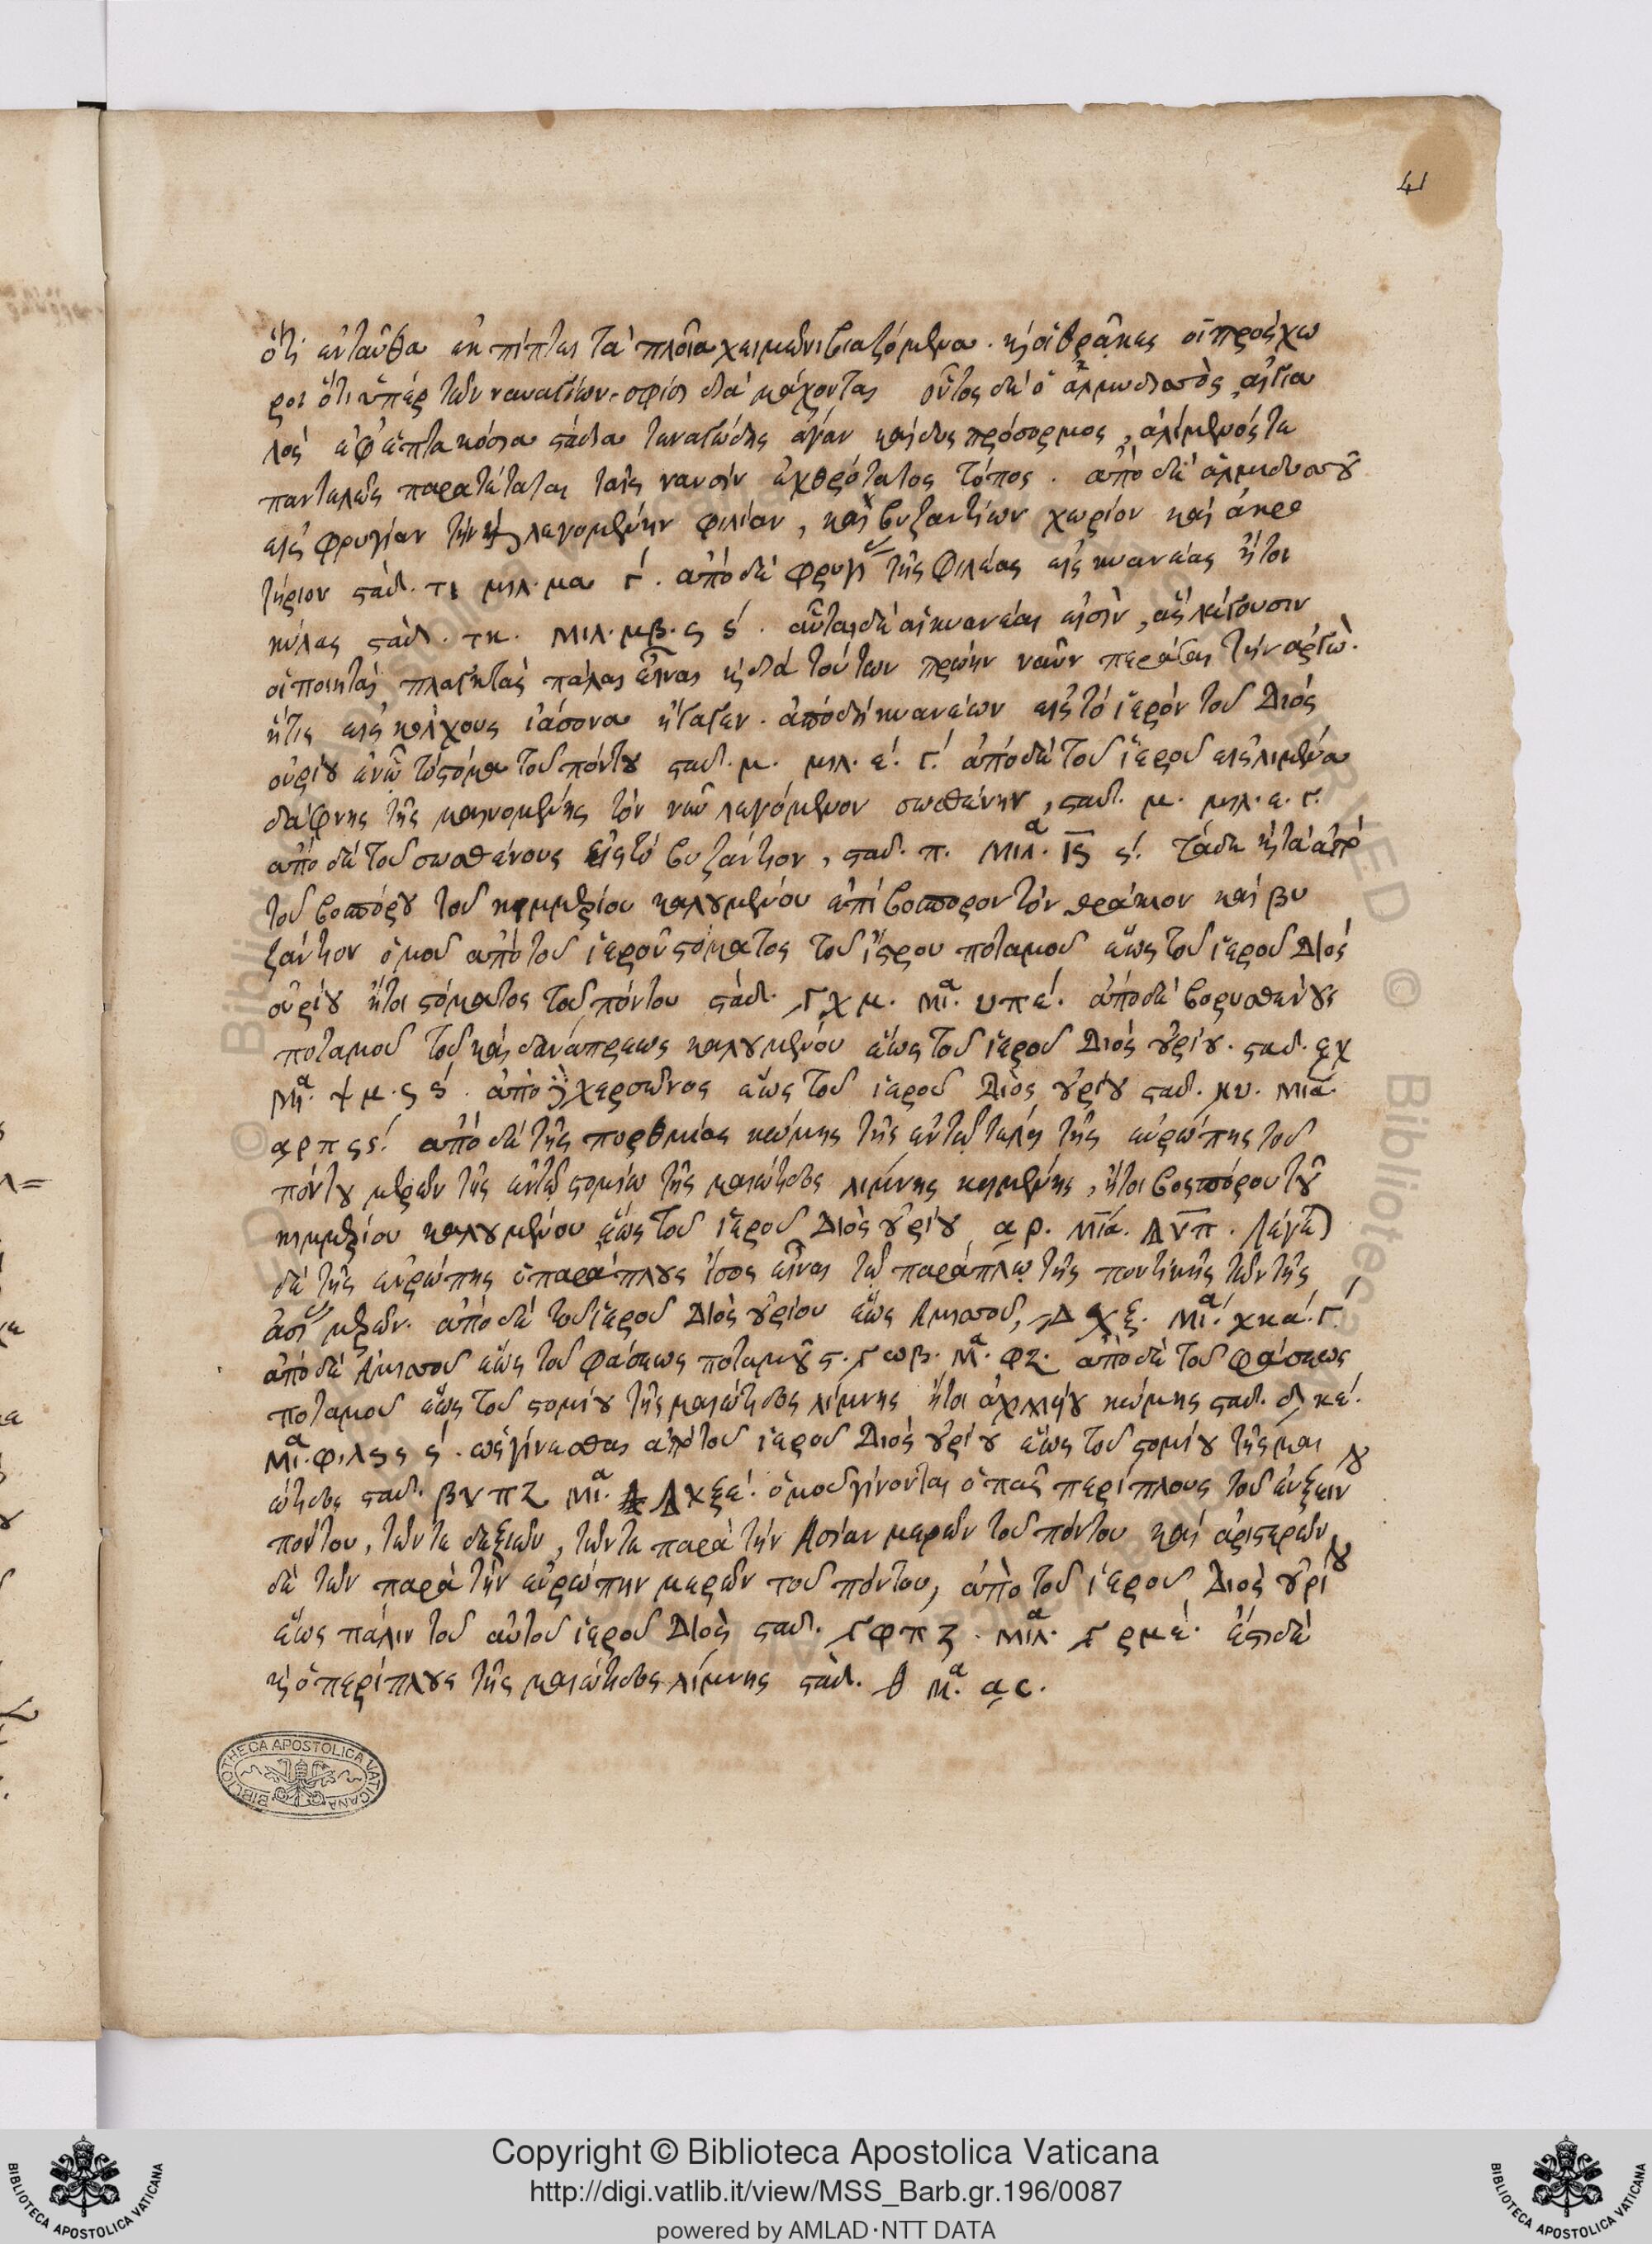 41
ὅτι ἐνταῦθα ἐκπίπτει τὰ πλοῖα χειμῶνι βιαζόμενα. κ οἱ θρᾷκες οἱ προσχω
ροι ὅτι ὑπὲρ τῶν ναυαγίων σφίσι διαμάχονται οὗτος δὲ ὁ ἁλμυδισσὸς αἰγια
λὸς ἐφ ἑπτακόσια στάδια τεναγώδης ἄγαν καὶ δυσπρόσορμος, ἀλίμενός τε
παντελῶς παρατέταται ταῖς ναυσὶν ἐχθρότατος τόπος. ἀπὸ δὲ ἁλμυδισσοῦ
εἰς φρυγίαν τὴν κ λεγομένην φιλίαν, καὶ βυζαντίων χωρίον καὶ ἀκρο
τήριον σταδ. τι μιλ. μα γ΄. ἀπὸ δὲ φρυγι τῆς Φιλέας εἰς κυανέας ἤτοι
κύλας σταδ. τκ. μιλ. μβ. ς ς΄. αὗται δὲ αἱ κυανέαι εἰσὶν, ἃς λέγουσιν
οἱ ποιηταὶ πλαγκτὰς πάλαι εἶναι κ διὰ τούτων πρώην ναῦν περᾶσαι τὴν ἀργὼ.
ἥτις εἰς κόλχους ἰάσονα ἤγαγεν. ἀπὸ δὲ κυανέων εἰς τὸ ἱερὸν τοῦ Διὸς
οὐρίου ἐν ᾧ τὸ στόμα τοῦ πόντου σταδ. μ. μιλ. ε΄. γ΄. ἀπὸ δὲ τοῦ ἱεροῦ εἰς λιμένα
δάφνης τῆς μαινομένης τὸν νῦν λεγόμενον σωσθένην, σταδ. μ. μιλ. ε. γ.
ἀπὸ δὲ τοῦ σωσθένους εἰς τὸ βυζάντιον, σταδ. π. Μιλα. ις ς΄. τάδε κ τὰ ἀπὸ
τοῦ βοσπόρου τοῦ κιμμερίου καλουμένου ἐπὶ βόσπορον τὸν θράκιον καὶ βυ
ζάντιον ὁμοῦ ἀπὸ τοῦ ἱεροῦ στόματος τοῦ ἴστρου ποταμοῦ ἕως τοῦ ἱεροῦ Διὸς
οὐρίου ἤτοι στόματος τοῦ πόντου σταδ. γχμ. μια. υπε΄. ἀπὸ δὲ βορυσθένους
ποταμοῦ τοῦ καὶ δανάπρεως καλουμένου ἕως τοῦ ἱεροῦ Διὸς οὐρίου. σταδ. εχ
Μια. ψμ. ς ς΄. ἀπὸ χερσῶνος ἕως τοῦ ἱεροῦ Διὸς οὐρίου σταδ. ηυ. μια
αρπ ςς΄ ἀπὸ δὲ τῆς πορθμίας κώμης τῆς ἐν τῷ τέλει τῆς εὐρώπης τοῦ
πόντου μερῶν τῆς ἐν τῷ στομίῳ τῆς μαιώτιδος λίμνης κειμένης, ἤτοι βοσπόρου τοῦ
κιμμερίου καλουμένου ἕως τοῦ ἱεροῦ Διὸς οὐρίου αρ. Μια. Δυπ. λέγεται
δὲ τῆς εὐρώπης ὁ παράπλους ἴσος εἶναι τῷ παράπλῳ τῆς ποντικῆς τῶν τῆς
ἀσι μερῶν. ἀπὸ δὲ τοῦ ἱεροῦ Διὸς οὐρίου ἕως Ἀμισσοῦ, Δχξ. Μια. χκα΄. γ΄
ἀπὸ δὲ Ἀμισσοῦ ἕως τοῦ φάσεως ποταμοῦ σ. γωβ. Μα. φζ. ἀπὸ δὲ τοῦ φάσεως
ποταμοῦ ἕως τοῦ στομίου τῆς μαιώτιδος λίμνης ἤτοι ἀχιλλείου κώμης σταδ. δ κε΄.
Μια. φ λς ς΄. ὡς γίνεσθαι ἀπὸ τοῦ ἱεροῦ Διὸς οὐρίου ἕως τοῦ στομίου τῆς μαι
ώτιδος σταδ. βυπζ Μια. Δχξε΄. ὁμοῦ γίνονται ὁ πᾶς περίπλους τοῦ εὐξείνου
πόντου, τῶν τε δεξιῶν, τῶν τε παρὰ τὴν Ἀσίαν μερῶν τοῦ πόντου καὶ ἀριστερῶν
δὲ τῶν παρὰ τὴν εὐρώπην μερῶν τοῦ πόντου, ἀπὸ τοῦ ἱεροῦ Διὸς οὐρίου
ἕως πάλιν τοῦ αὐτοῦ ἱεροῦ Διὸς σταδ. γφπζ. Μιλα. γρμε΄. ἔστι δὲ
κ ὁ περίπλους τῆς μαιώτιδος λίμνης σταδ. θ Μα. ας.
BIBLIOTHECA APOSTOLICA VATICANA
Copyright © Biblioteca Apostolica Vaticana
http://digi.vatlib.it/view/MSS_Barb.gr.196/0087
powered by AMLAD·NTT DATA